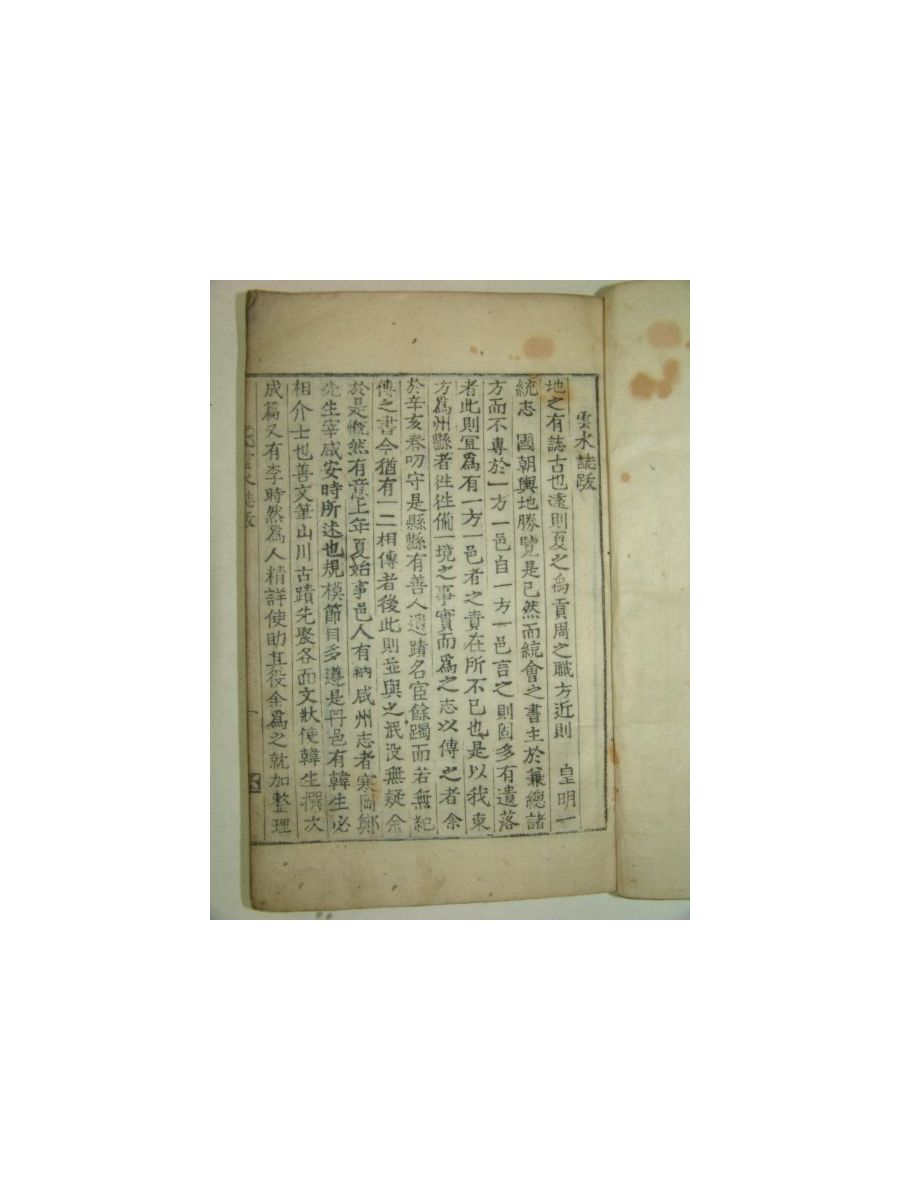 雲水誌跋
地之有誌古也遠則夏之禹貢周之職方近則 皇明一
統志 國朝輿地勝覽是已然而統會之書主於兼總諸
方而不專於一方一邑自一方一邑言之則固多有遺落
者此則宜爲有一方一邑者之責在所不已也是以我東
方爲州縣者徃徃備一境之事實而爲之志以傳之者余
於辛亥春叨守是縣縣有善人遺蹟名宦餘躅而若無紀
傳之書今猶有一二相傳者後此則並與之泯没無疑余
於是慨然有意上年夏始事邑人有納咸州志者寒岡鄭
先生宰咸安時所述也規模節目多遵是冊邑有韓生必
相介士也善文筆山川古蹟先聚各面文狀使韓生撰次
成篇又有李時然爲人精詳使助其役余爲之就加整理
雲水誌跋